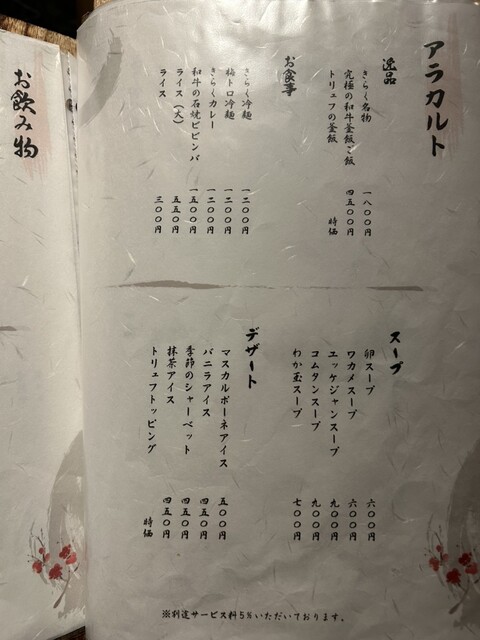 アラカルト
逸品
きらく名物 一八〇〇円
究極の和牛釜飯ご飯 四五〇〇円
トリュフの釜飯 時価
お食事
きらく冷麺 一二〇〇円
梅トロ冷麺 一二〇〇円
きらくカレー 一二〇〇円
和牛の石焼ビビンバ 一五〇〇円
ライス（大） 五五〇円
ライス 三〇〇円
スープ
卵スープ 六〇〇円
ワカメスープ 六〇〇円
ユッケジャンスープ 九〇〇円
コムタンスープ 九〇〇円
わか玉スープ 七〇〇円
デザート
マスカルポーネアイス 五〇〇円
バニラアイス 四五〇円
季節のシャーベット 四五〇円
抹茶アイス 四五〇円
トリュフトッピング 時価
※別途サービス料5%いただいております。
お飲み物